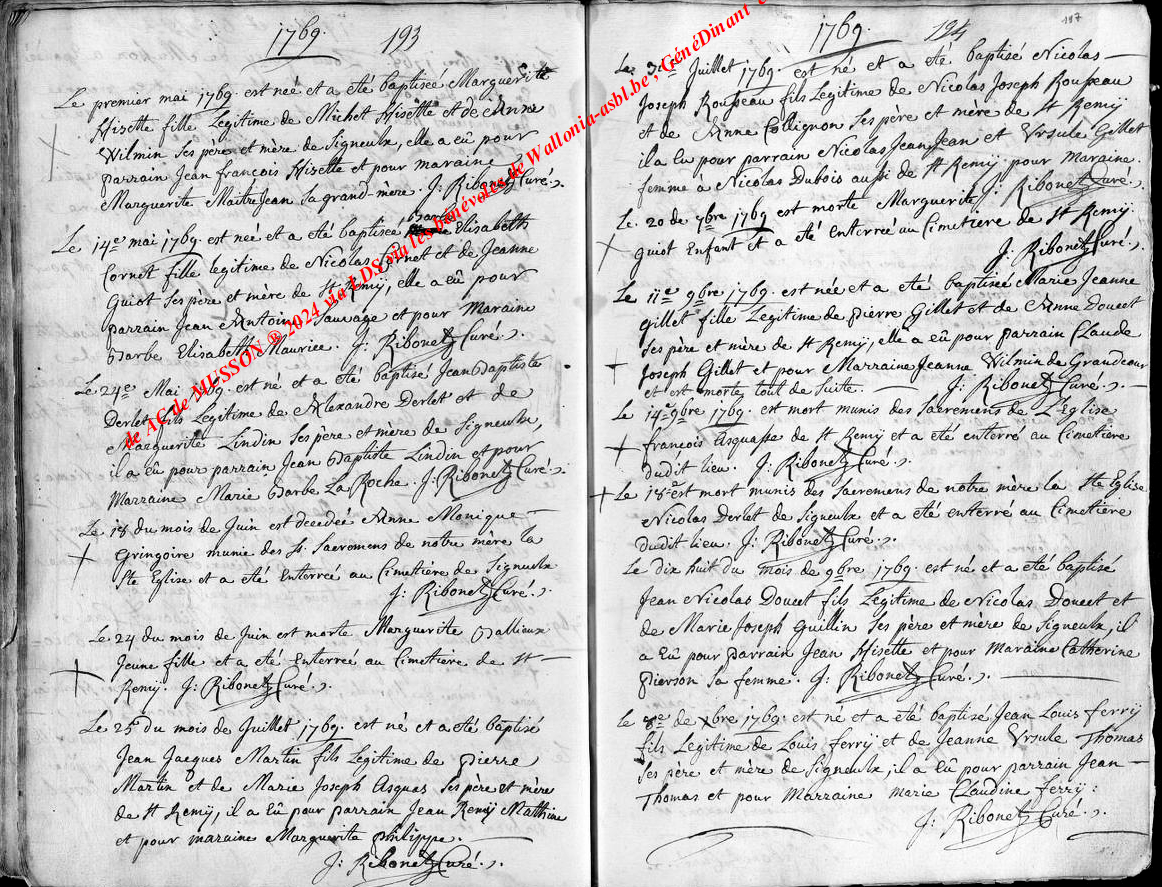 1769. 193
Le premier mai 1769. est neé et a eté baptiseé Marguerite
Hisette fille Legitime de Michel Hisette et de Anne
Wilmin ses père et mère de signeulx, elle a eû pour
parrain Jean françois Hisette et pour maraine
Marguerite MaitreJean sa grand-mère. J: Ribonet Curé.
Le 14e mai 1769. est neé et a eté baptiseé Barbe Elisabeth
Cornet fille legitime de Nicolas Cornet et de Jeanne
Guiot ses pere et mère de St Remÿ, elle a eû pour
parrain Jean Antoine Sauvage et pour Maraine
Barbe Elisabeth Maurice. J: Ribonet Curé.
Le 24e Mai 1769. est né et a eté baptisé JeanBaptiste
Derlet fils Legitime de Alexandre Derlet et de
Marguerite Lindin ses père et mère de Signeulx,
il a eû pour parrain Jean Baptiste Lindin et pour
Marraine Marie Barbe La Roche. J: Ribonet Curé.
Le 18 du mois de Juin est decedeé Anne Monique
Gringoire munie des St. Sacremens de notre mère la
Ste Eglise et a eté Enterreé au Cimetière de Signeulx
J: Ribonet Curé.
Le 24 du mois de Juin est morte Marguerite Ballieux
Jeune fille et a eté Enterreé au Cimetière de St
Remy. J: Ribonet Curé.
Le 25 du mois de Juillet 1769. est né et a eté baptisé
Jean Jacques Martin fils Legitime de pierre
Martin et de Marie Joseph Asquas ses père et mère
de St Remy, il a Eû pour parrain Jean Remÿ Mathieu
et pour maraine Marguerite philippe.
J: Ribonet Curé.
1769. 194
197
Le Juillet 1769. est né et a eté baptisé Nicolas
Joseph Rousseau fils Legitime de Nicolas Joseph Rousseau
et de Anne Collignon ses père et mère de St Remÿ
il a Eû pour parrain Nicolas JeanJean et Ursule Gillet
femme à Nicolas Dubois aussi de St Remÿ pour Maraine.
J: Ribonet Curé.
Le 20 de 7bre 1769 est morte Marguerite
guiot Enfant Et a eté Enterreé au Cimetiere de St Remÿ
J: Ribonet Curé.
Le 11e 9bre 1769. est neé et a eté baptiseé Marie Jeanne
gillet fille Legitime de pierre Gillet et de Anne Doucet
ses père et mère de St Remÿ, elle a eû pour parrain Claude
Joseph Gillet et pour Marraine Jeanne Wilmin de Grandcour
et est morte tout de suite. J: Ribonet Curé.
Le 14e 9bre 1769. est mort munis des sacremens de L'Eglise
françois Asquasse de St Remÿ et a eté enterré au Cimetière
dudit lieu. J: Ribonet Curé.
Le est mort munis des Sacremens de notre mère la Ste Eglise
Nicolas Derlet de Signeulx et a eté enterré au Cimetière
dudit lieu. J: Ribonet Curé.
Le dix huit du mois de 9bre 1769. est né et a eté baptisé
Jean Nicolas Doucet fils Legitime de Nicolas Doucet et
de Marie Joseph Guillin ses père et mère de Signeulx, il
a Eû pour parrain Jean Hisette et pour Maraine Catherine
pierson sa femme. J: Ribonet Curé.
Le de Xbre 1769. est né et a eté baptisé Jean Louis ferrÿ
fils Legitime de Louis ferrÿ et de Jeanne Ursule Thomas
ses père et mère de Signeulx, il a Eû pour parrain Jean
Thomas et pour Marraine Marie Claudine ferry:
J: Ribonet Curé.
de AC de MUSSON ® 2024 via LDS via les bénévoles de Wallonia-asbl.be ; GénéDinant